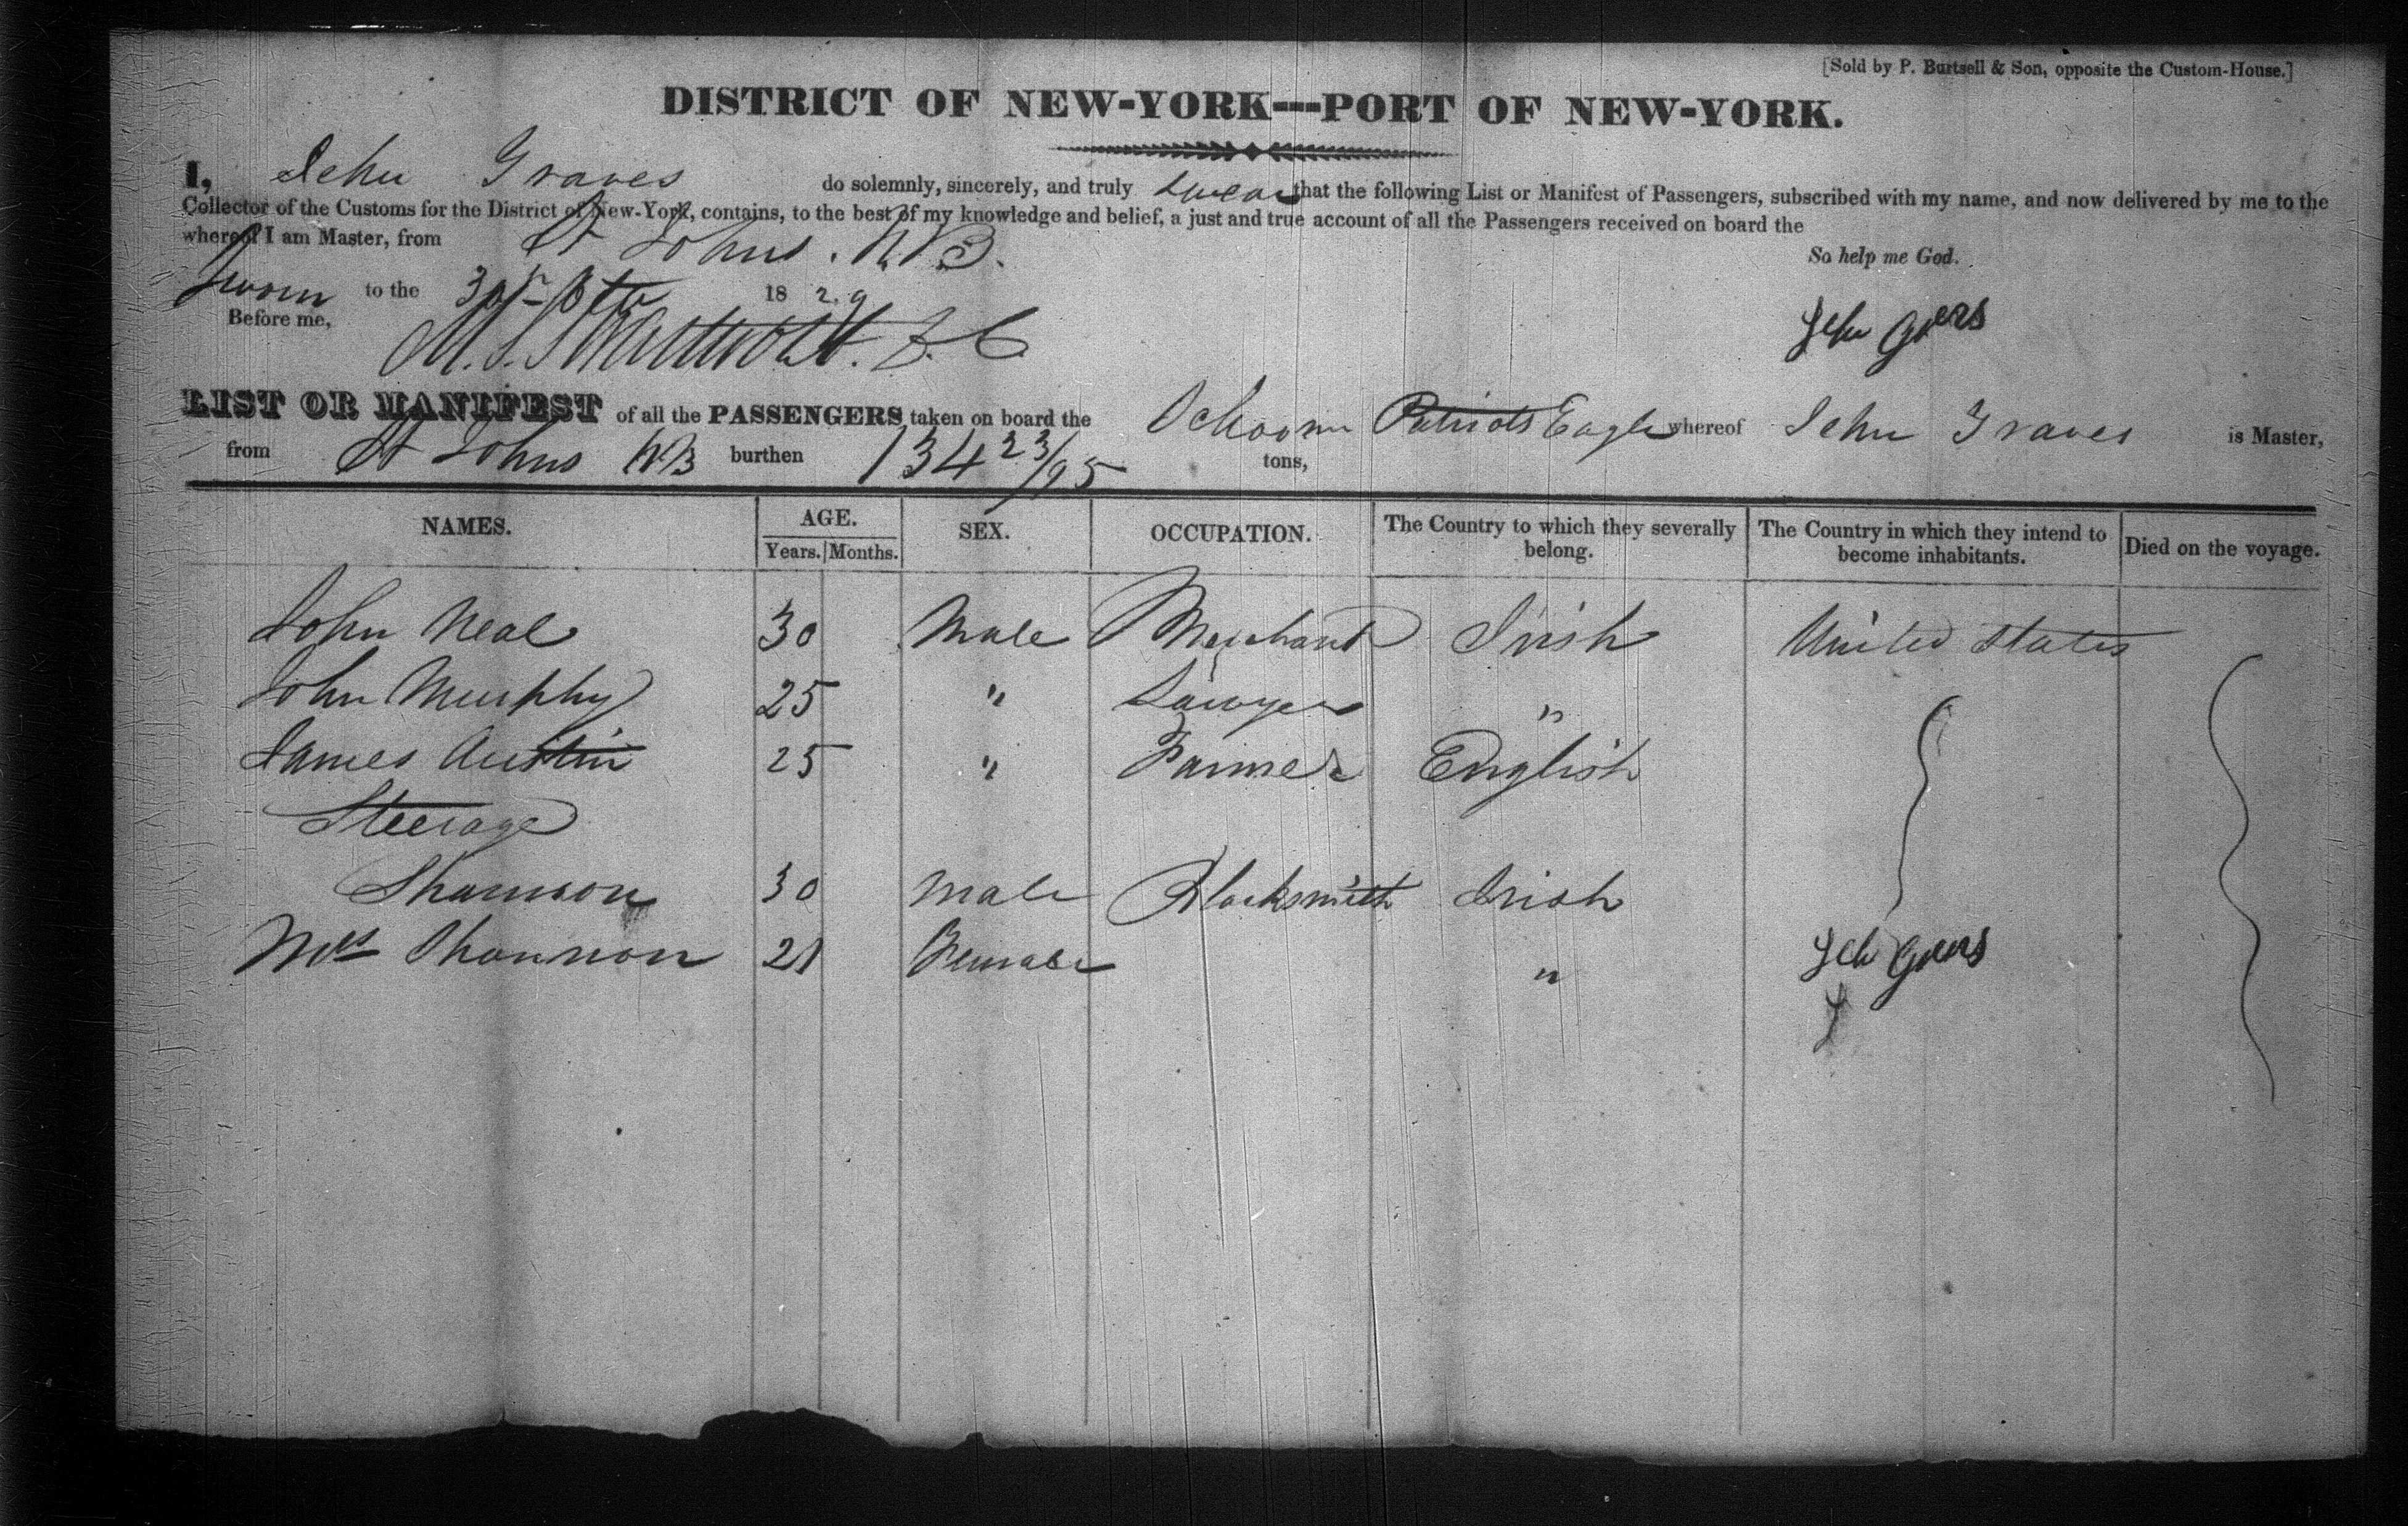 [Sold by P. Burtsell & Son, opposite the Custom-House.]
DISTRICT OF NEW-YORK—PORT OF NEW-YORK.
I, Jehu Graves do solemnly, sincerely, and truly swear that the following List or Manifest of Passengers, subscribed with my name, and now delivered by me to the
Collector of the Customs for the District of New-York, contains, to the best of my knowledge and belief, a just and true account of all the Passengers received on board the
whereof I am Master, from St Johns. N.B.
So help me God.
Sworn to the 1829
Before me,
Jehu
LIST OR MANIFEST of all the PASSENGERS taken on board the Schooner Patriots Eagle whereof Jehu Graves is Master,
from St Johns NB burthen 134 23/95 tons,
NAMES. AGE. SEX. OCCUPATION. The Country to which they severally belong. The Country in which they intend to become inhabitants. Died on the voyage.
Years. Months.
John Neal 30 Male Merchant Irish United States
John Murphy 25 " Sawyer "
James Austin 25 " Farmer English
Steerage
Shannon 30 Male Blacksmith Irish
Mrs Shannon 21 Female "